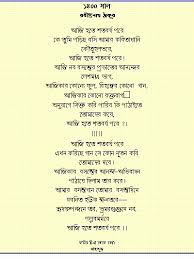 ১৪০০ সাল
রবীন্দ্রনাথ ঠাকুর
আজি হতে শতবর্ষ পরে
কে তুমি পড়িছ বসি আমার কবিতাখানি
কৌতূহলভরে,
আজি হতে শতবর্ষ পরে!
আজি নব বসন্তের প্রভাতের আনন্দের
লেশমাত্র ভাগ,
আজিকার কোনো ফুল, বিহঙ্গের কোনো গান,
আজিকার কোনো রক্তরাগ
অনুরাগে সিক্ত করি পারিব কি পাঠাইতে
তোমাদের করে,
আজি হতে শতবর্ষ পরে?।
আজি হতে শতবর্ষ পরে
এখন করিছে গান সে কোন্ নূতন কবি
তোমাদের ঘরে!
আজিকার বসন্তের আনন্দ-অভিবাদন
পাঠায়ে দিলাম তার করে।
আমার বসন্তগান তোমার বসন্তদিনে
ধ্বনিত হউক ক্ষণতরে—
হৃদয়স্পন্দনে তব, ভ্রমরগুঞ্জনে নব,
পল্লবমর্মরে
আজি হতে শতবর্ষ পরে॥